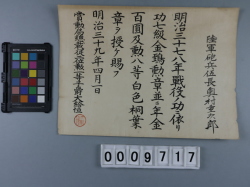 陸軍砲兵伍長奥村重次郎
明治三十七八年戦役ノ功ニ依リ
功七級金鵄勲章並ニ年金
百圓及勲八等白色桐葉
章ヲ授ケ賜フ
明治三十九年四月一日
賞勲局総裁従二位勲一等子爵大給恒
0009717